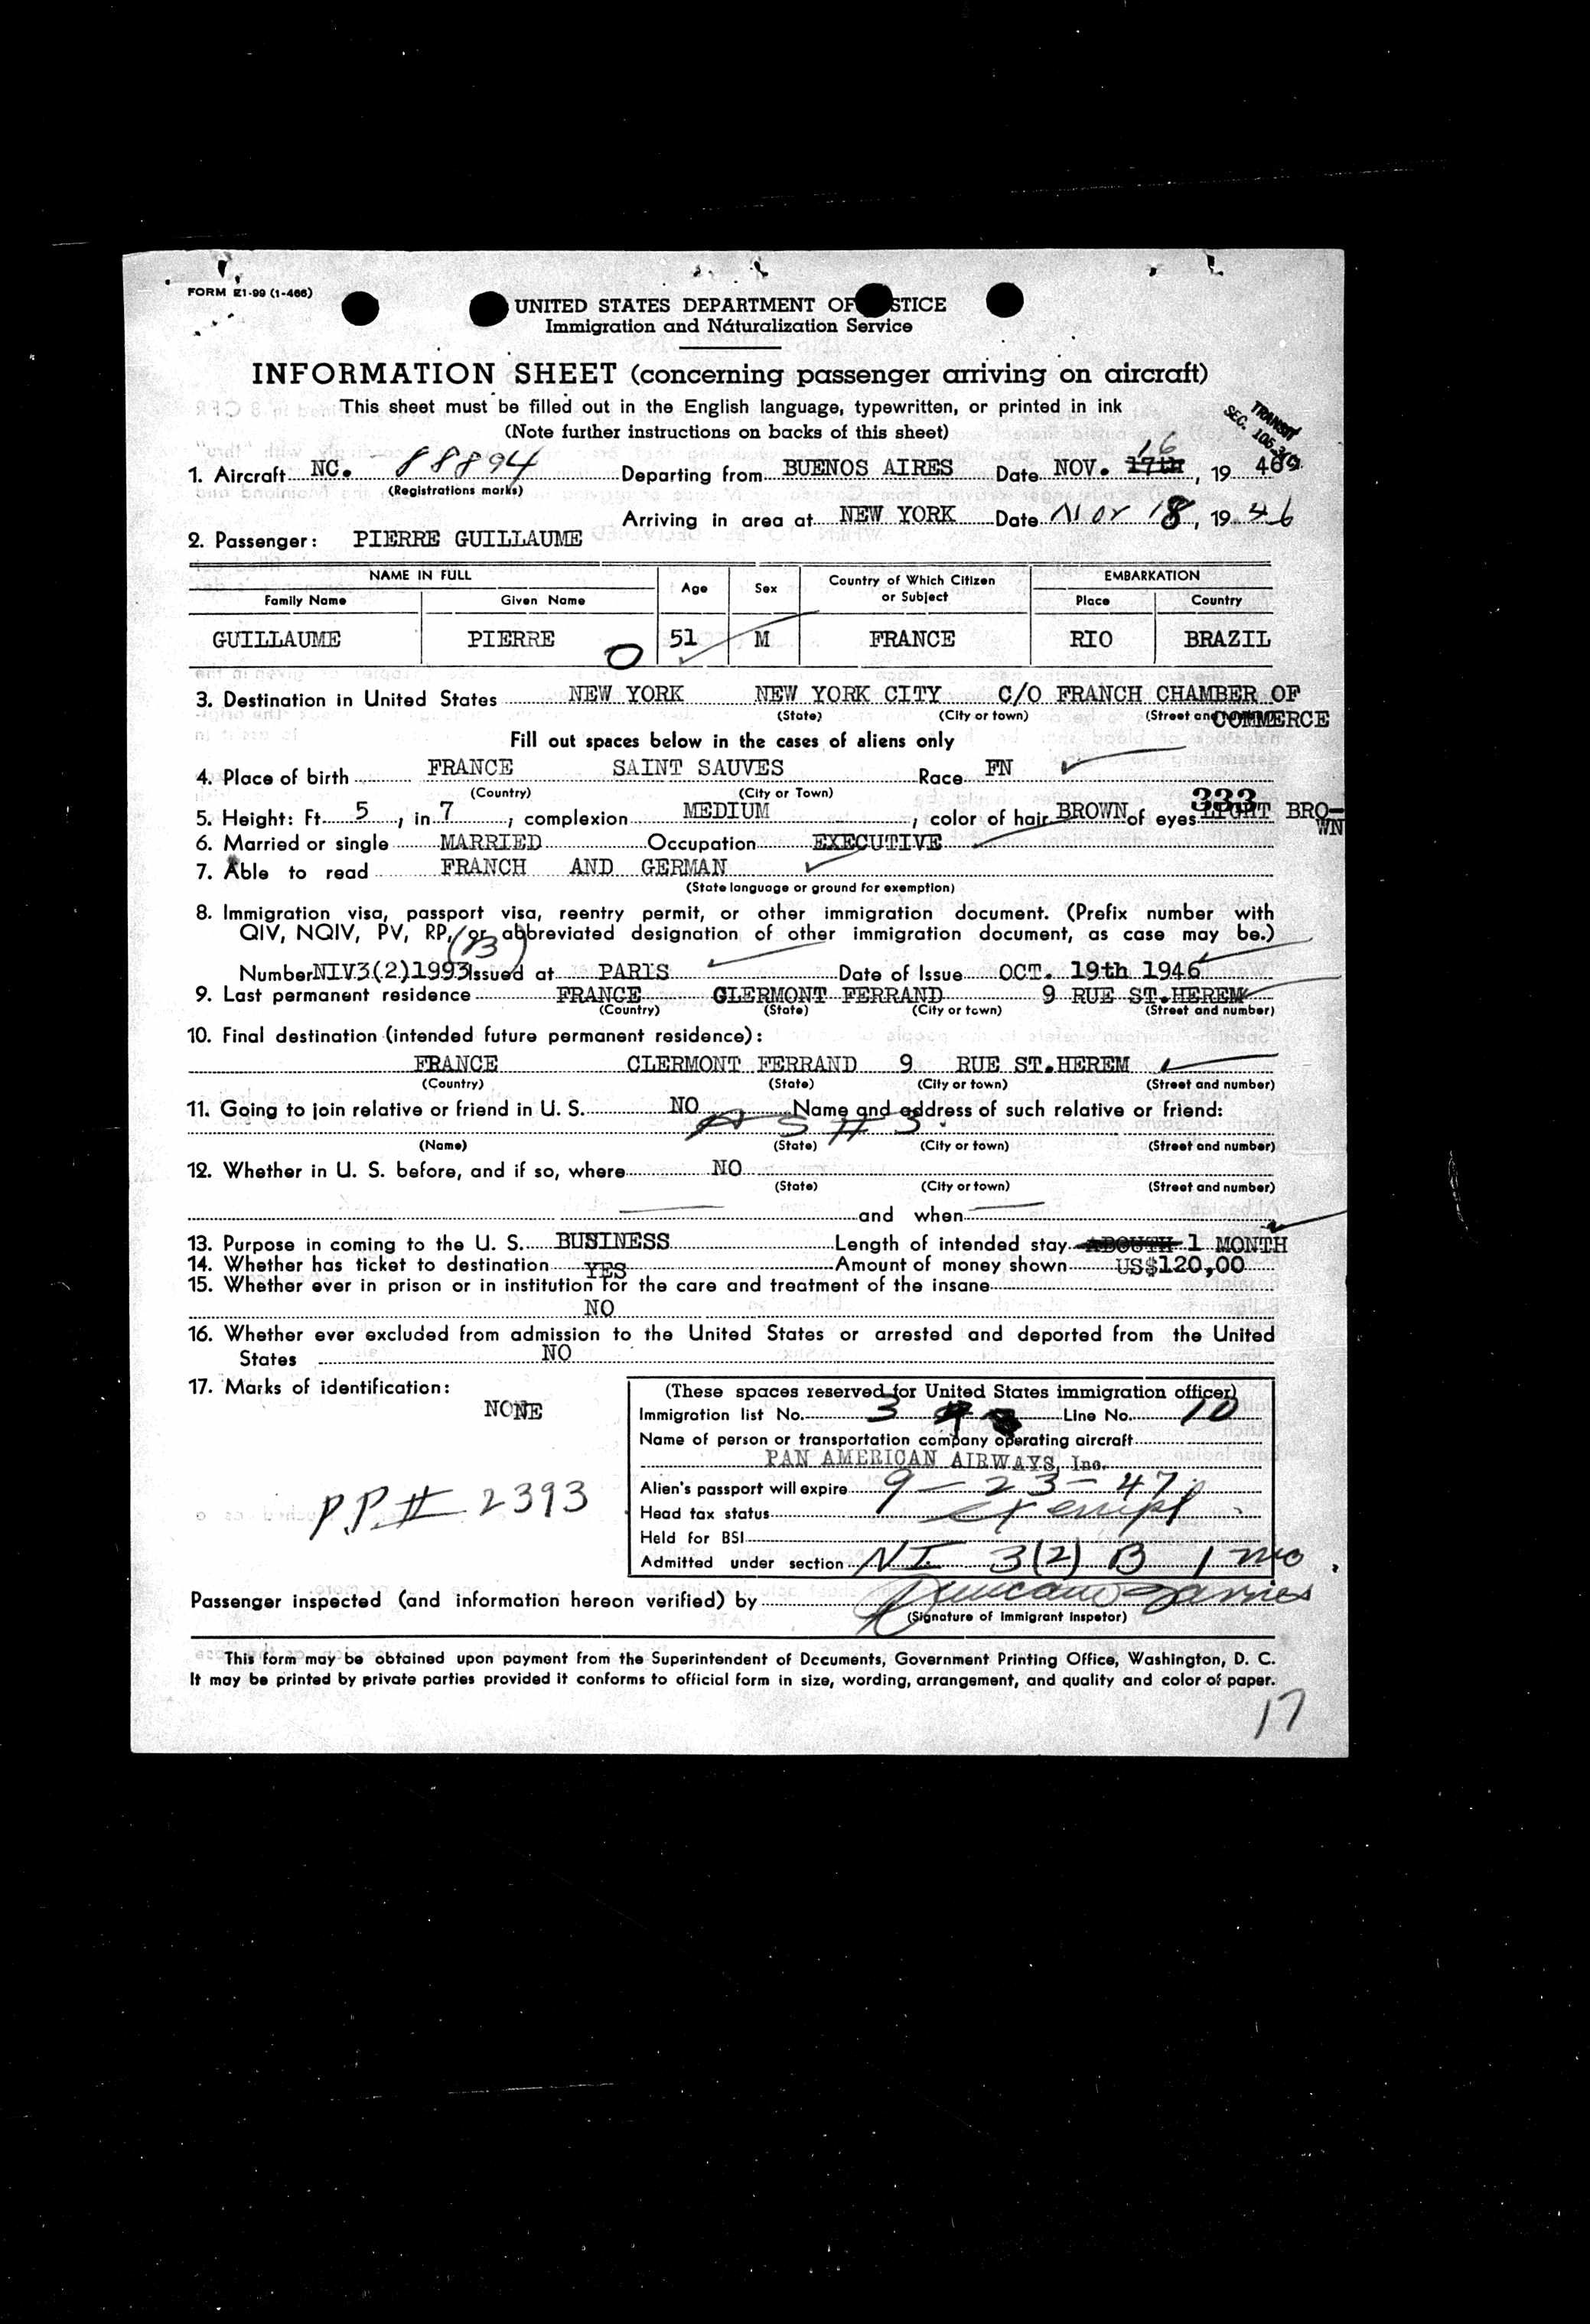 FORM E1-99 (1-466)
UNITED STATES DEPARTMENT OF STICE
Immigration and Naturalization Service
INFORMATION SHEET (concerning passenger arriving on aircraft)
This sheet must be filled out in the English language, typewritten, or printed in ink
(Note further instructions on backs of this sheet)
TRANSIT
SEC. 105.3
16
1. Aircraft NC. 88894 Departing from BUENOS AIRES Date NOV. 17th, 19 46
(Registrations marks)
Arriving in area at NEW YORK Date Nov 18, 19 46
2. Passenger: PIERRE GUILLAUME
NAME IN FULL Age Sex Country of Which Citizen or Subject EMBARKATION
Family Name Given Name Place Country
GUILLAUME PIERRE O 51 M FRANCE RIO BRAZIL
3. Destination in United States NEW YORK NEW YORK CITY C/O FRANCH CHAMBER OF
(State) (City or town) (Street and COMMERCE
Fill out spaces below in the cases of aliens only
4. Place of birth FRANCE SAINT SAUVES Race FN
(Country) (City or Town)
333
5. Height: Ft. 5, in 7, complexion MEDIUM, color of hair BROWN of eyes LIGHT BRO-
WN
6. Married or single MARRIED Occupation EXECUTIVE
7. Able to read FRANCH AND GERMAN
(State language or ground for exemption)
8. Immigration visa, passport visa, reentry permit, or other immigration document. (Prefix number with
QIV, NQIV, PV, RP, or abbreviated designation of other immigration document, as case may be.)
(B)
Number NIV3(2)1993 Issued at PARIS Date of Issue OCT. 19th 1946
9. Last permanent residence FRANCE GLERMONT FERRAND 9 RUE ST.HEREM
(Country) (State) (City or town) (Street and number)
10. Final destination (intended future permanent residence):
FRANCE CLERMONT FERRAND 9 RUE ST.HEREM
(Country) (State) (City or town) (Street and number)
11. Going to join relative or friend in U. S. NO Name and address of such relative or friend:
AS # 3.
(Name) (State) (City or town) (Street and number)
12. Whether in U. S. before, and if so, where NO
(State) (City or town) (Street and number)
and when
13. Purpose in coming to the U. S. BUSINESS Length of intended stay ABOUTH 1 MONTH
14. Whether has ticket to destination YES Amount of money shown US$120,00
15. Whether ever in prison or in institution for the care and treatment of the insane
NO
16. Whether ever excluded from admission to the United States or arrested and deported from the United
States NO
17. Marks of identification:
NONE
PP# 2393
(These spaces reserved for United States immigration officer)
Immigration list No. 3 Line No. 10
Name of person or transportation company operating aircraft
PAN AMERICAN AIRWAYS, Inc.
Alien's passport will expire 9-23-47
Head tax status exempt
Held for BSI
Admitted under section NI 3(2) B 1 mo
Passenger inspected (and information hereon verified) by
(Signature of Immigrant Inspetor)
This form may be obtained upon payment from the Superintendent of Documents, Government Printing Office, Washington, D. C.
It may be printed by private parties provided it conforms to official form in size, wording, arrangement, and quality and color of paper.
17